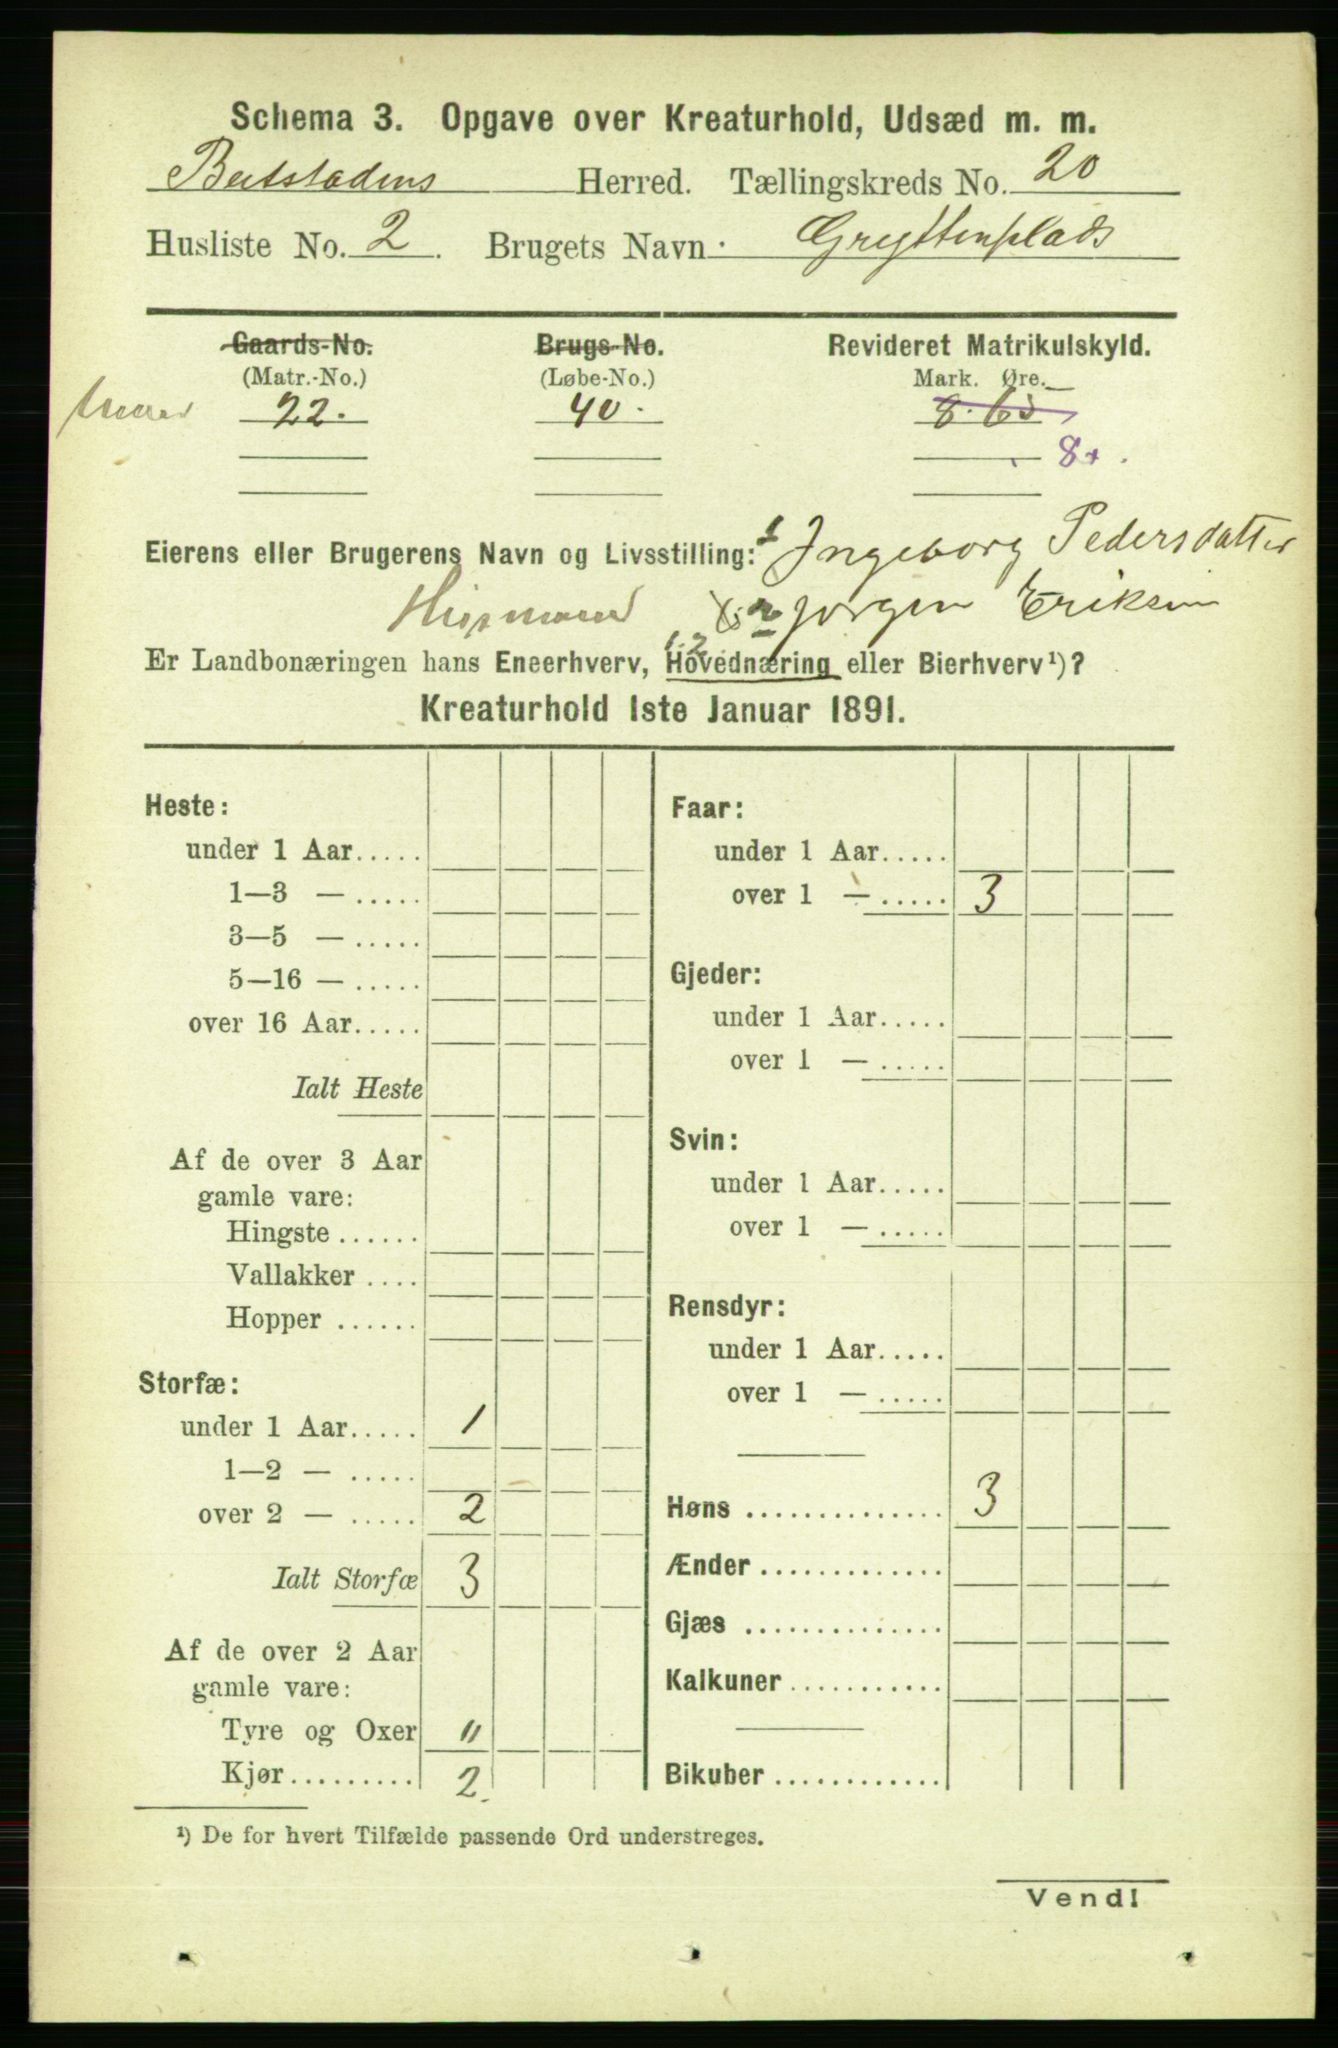 Schema 3. Opgave over Kreaturhold, Udsæd m. m.
Beitstadens Herred. Tællingskreds No. 20
Husliste No. 2. Brugets Navn Gryttenplads
Gaards-No. Brugs-No. Revideret Matrikulskyld.
(Matr.-No.) (Løbe-No.) Mark. Øre.
22. 40. 8. 65
8
Eierens eller Brugerens Navn og Livsstilling: 1 Ingeborg Pedersdatter
Husmand 2 Jørgen Eriksen
1. 2
Er Landbonæringen hans Eneerhverv, Hovednæring eller Bierhverv¹)?
Kreaturhold 1ste Januar 1891.
Heste:
under 1 Aar.....
1—3 — .....
3—5 — .....
5—16 — .....
over 16 Aar.....
Ialt Heste
Af de over 3 Aar
gamle vare:
Hingste ......
Vallakker ....
Hopper ......
Storfæ:
under 1 Aar..... 1
1—2 — .....
over 2 — ..... 2
Ialt Storfæ 3
Af de over 2 Aar
gamle vare:
Tyre og Oxer "
Kjør......... 2.
Faar:
under 1 Aar.....
over 1 — ..... 3
Gjeder:
under 1 Aar.....
over 1 — .....
Svin:
under 1 Aar.....
over 1 — .....
Rensdyr:
under 1 Aar.....
over 1 — .....
Høns .............. 3
Ænder .............
Gjæs ..............
Kalkuner ...........
Bikuber ............
¹) De for hvert Tilfælde passende Ord understreges.
Vend!